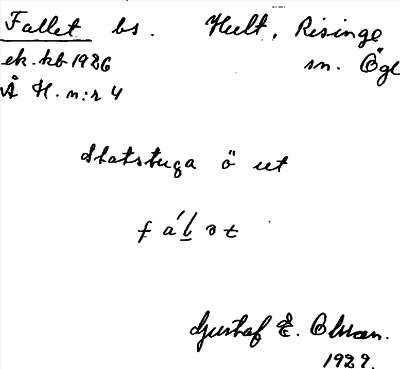 Fallet bs. Hult, Risinge
ek. kb 1926 sn. Ögl
Å H. n:r 4
Statstuga ö ut
Gustaf E. Olsson.
1929.